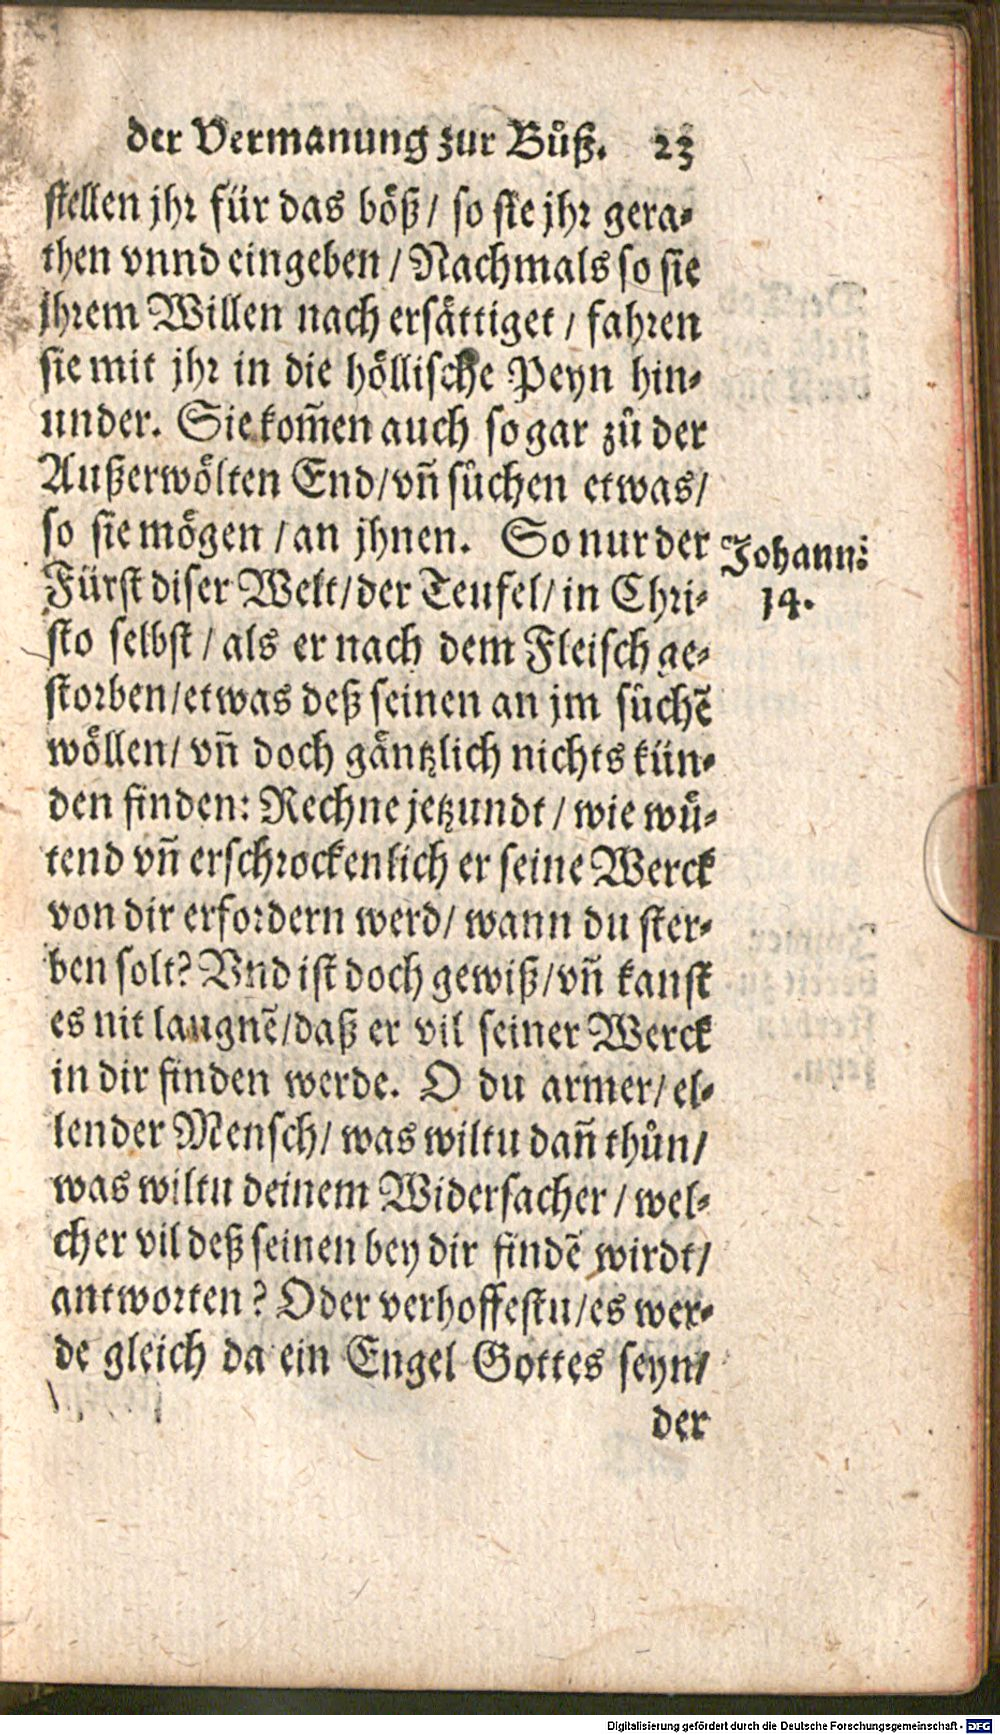 der Vermanung zur Bůß. 23
stellen jhr für das böß/ so sie jhr gera-
then vnnd eingeben/ Nachmals so sie
jhrem Willen nach ersättiget/ fahren
sie mit jhr in die höllische Peyn hin-
under. Sie kom̃en auch so gar zů der
Außerwölten End/ vñ sůchen etwas/
so sie mögen/ an jhnen. So nur der
Johann:
14.
Fürst diser Welt/ der Teufel/ in Chri-
sto selbst/ als er nach dem Fleisch ge-
storben/ etwas deß seinen an jm sůchẽ
wöllen/ vñ doch gäntzlich nichts kün-
den finden: Rechne jetzundt/ wie wü-
tend vñ erschrockenlich er seine Werck
von dir erfordern werd/ wann du ster-
ben solt? Vnd ist doch gewiß/ vñ kanst
es nit laugnẽ/ daß er vil seiner Werck
in dir finden werde. O du armer/ el-
lender Mensch/ was wiltu dañ thůn/
was wiltu deinem Widersacher/ wel-
cher vil deß seinen bey dir findẽ wirdt/
antworten? Oder verhoffestu/ es wer-
de gleich da ein Engel Gottes seyn/
der
Digitalisierung gefördert durch die Deutsche Forschungsgemeinschaft - DFG